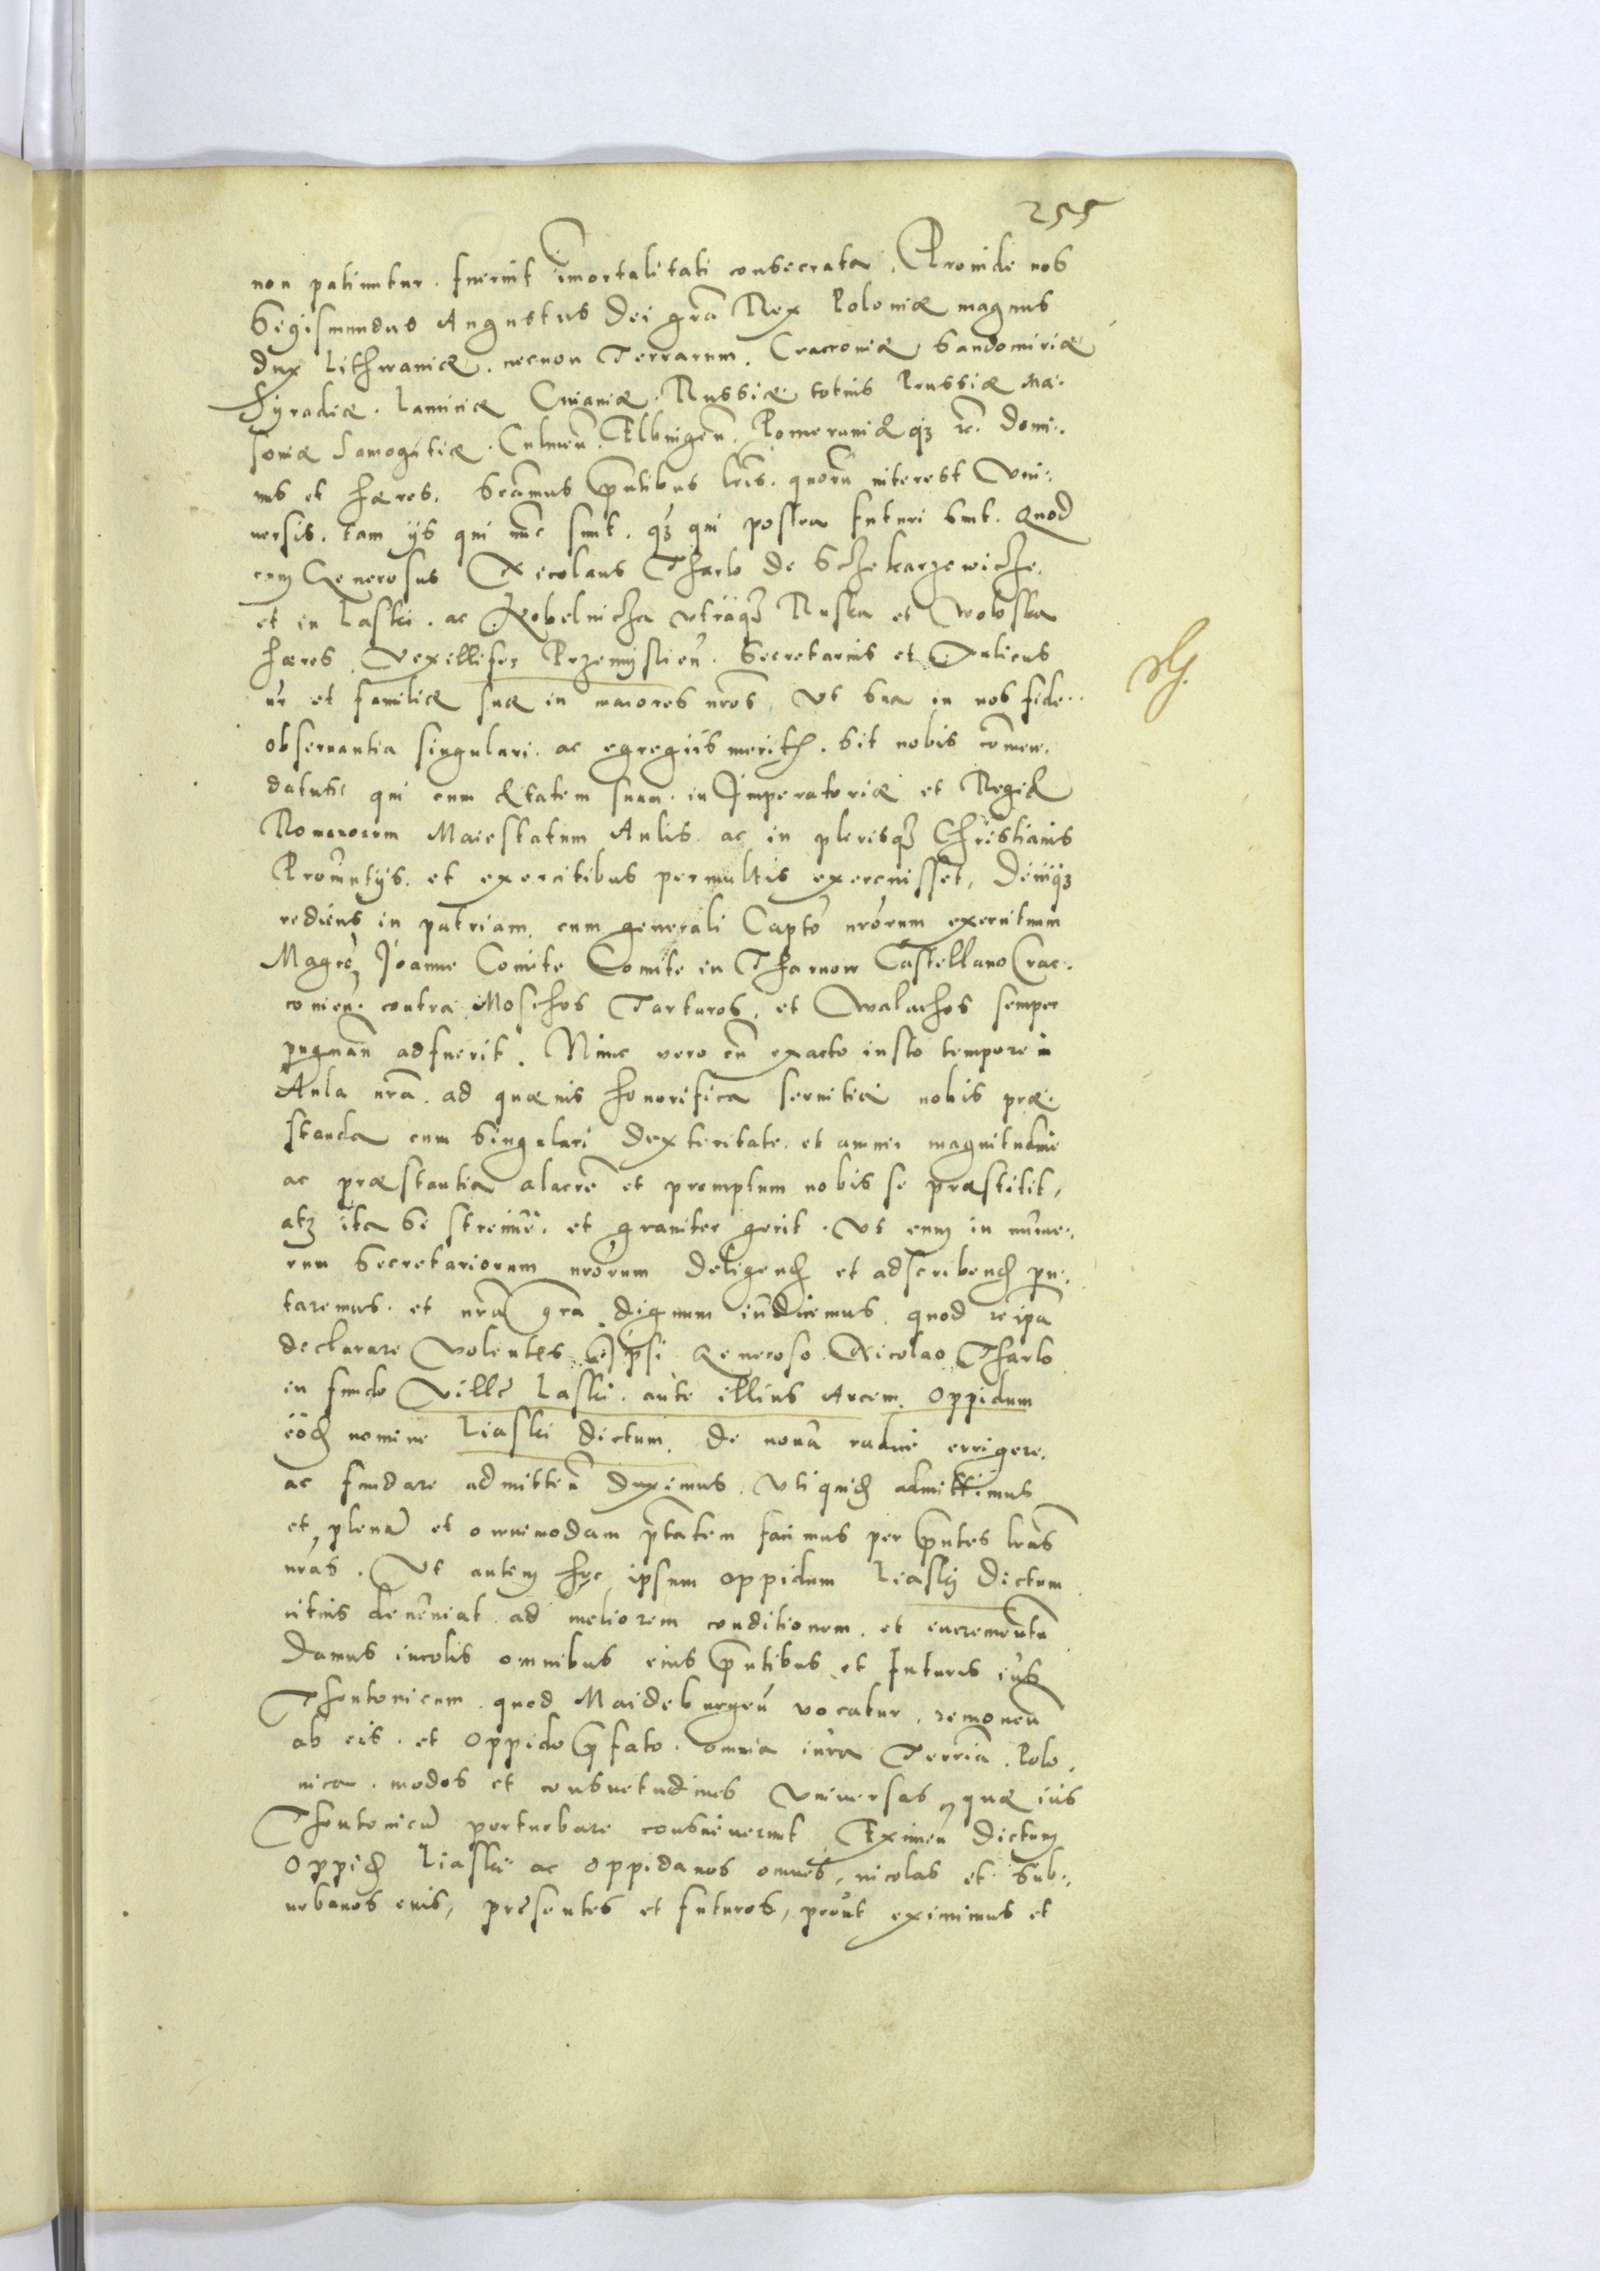 255
non patiuntur. fuerint im̄ortalitati consecrata. Proinde nos
Sigismundus Augustus Dei grā Rex Poloniæ magnus
dux Lithwaniæ. necnon Terrarum. Cracroniæ Sandomiriæ
Syradiæ. Lanciciæ Cuiaviæ. Russiæ totius Prussiæ Ma-
soviæ Samogitiæ. Culmeñ. Elbingeñ. Pomeraniæ qȝ zc̄. domi-
nus et hæres. Sc̄amus p̄ntibus lrīs. quorū interest Vni-
uersis. tam ijs qui nūc sunt. qȝ qui postea futuri sunt. Quod
cum Generosus Nicolaus Tharlo de Schekarzewicze.
et in Laski. ac Kobelnicza vtraqȝ Ruska et Woloska
hæres. Vexillifer Przemisłieñ. Secretarius et Aulicus
nr̄ et familiæ suæ in maiores nr̄os, Vt sua in nos fide
obseruantia singulari. ac egregiis meritis. sit nobis com̄en-
datus qui cum ætatem suam in Imperatoriæ et Regiæ
Romanorum Maiestatum Aulis ac in plerisqȝ Christianis
Prouintijs. et exercitibus permultis exercuisset, Deniqȝ
rediens in patriam, cum generali Capto nr̄orum exercituum
Magco Joanne Comite Comite in Tharnow Castellano Crac-
covien̄. contra Moschos Tartaros. et Walachos semper
pugnañ adfuerit. Nunc vero cū exacto iusto tempore in
Aula nr̄a. ad quævis honorifica seruitia nobis præ-
standa cum singulari dexteritate. et animi magnitudine
ac præstantia alacrē et promptum nobis se præstitit,
atqȝ ita se strenuē. et grauiter gerit. Vt eum in nume-
rum Secretariorum nr̄orum deligend et adscribend pu-
taremus. et nr̄a gr̄a dignum iudicemus. quod reipā
declarare Volentes ipsi Generoso Nicolao Tharlo
in fundo Villæ Laski. ante illius Arcem Oppidum
eod nomine Liaski dictum. de noua radice errigere.
ac fundare admitteñ duximus. Vti quid admittimus
et plenā et omnimodam ptatem facimus per p̄ntes lrās
nr̄as. Vt autem hoc ipsum oppidum Liaski dictum
citius deueniat ad meliorem conditionem. et incrementū
Damus incolis omnibus eius p̄ntibus et Futuris ius
Theutonicum. quod Maideburgeñ vocatur. remoueñ
ab eis. et Oppido p̄fato. omnia iura Terriā. Polo-
nica. modos et consuetudines Vniuersas quæ ius
Theutonicū perturbare consueuerunt Eximeñ dictum
Oppid Liaski ac oppidanos omnes, incolas et Sub-
urbanos eius, presentes et futuros, prout eximimus et